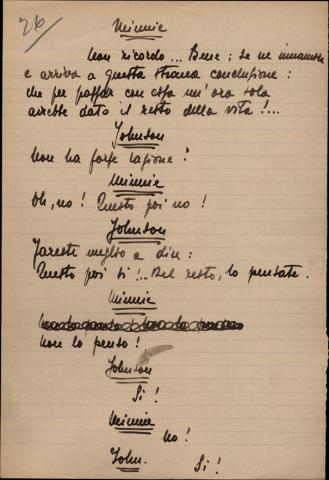 26
Minnie
Non ricordo... Bene: se ne innamora
e arriva a questa strana conclusione:
che per passar con essa un'ora sola
avrebbe dato il resto della vita!...
Johnson
Non ha forse ragione?
Minnie
Oh, no! Questo poi no!
Johnson
Fareste meglio a dir:
Questo poi sì!... Del resto, lo pensate.
Minnie
Non lo penso!
Johnson
Sì!
Minnie
No!
John.
Sì!